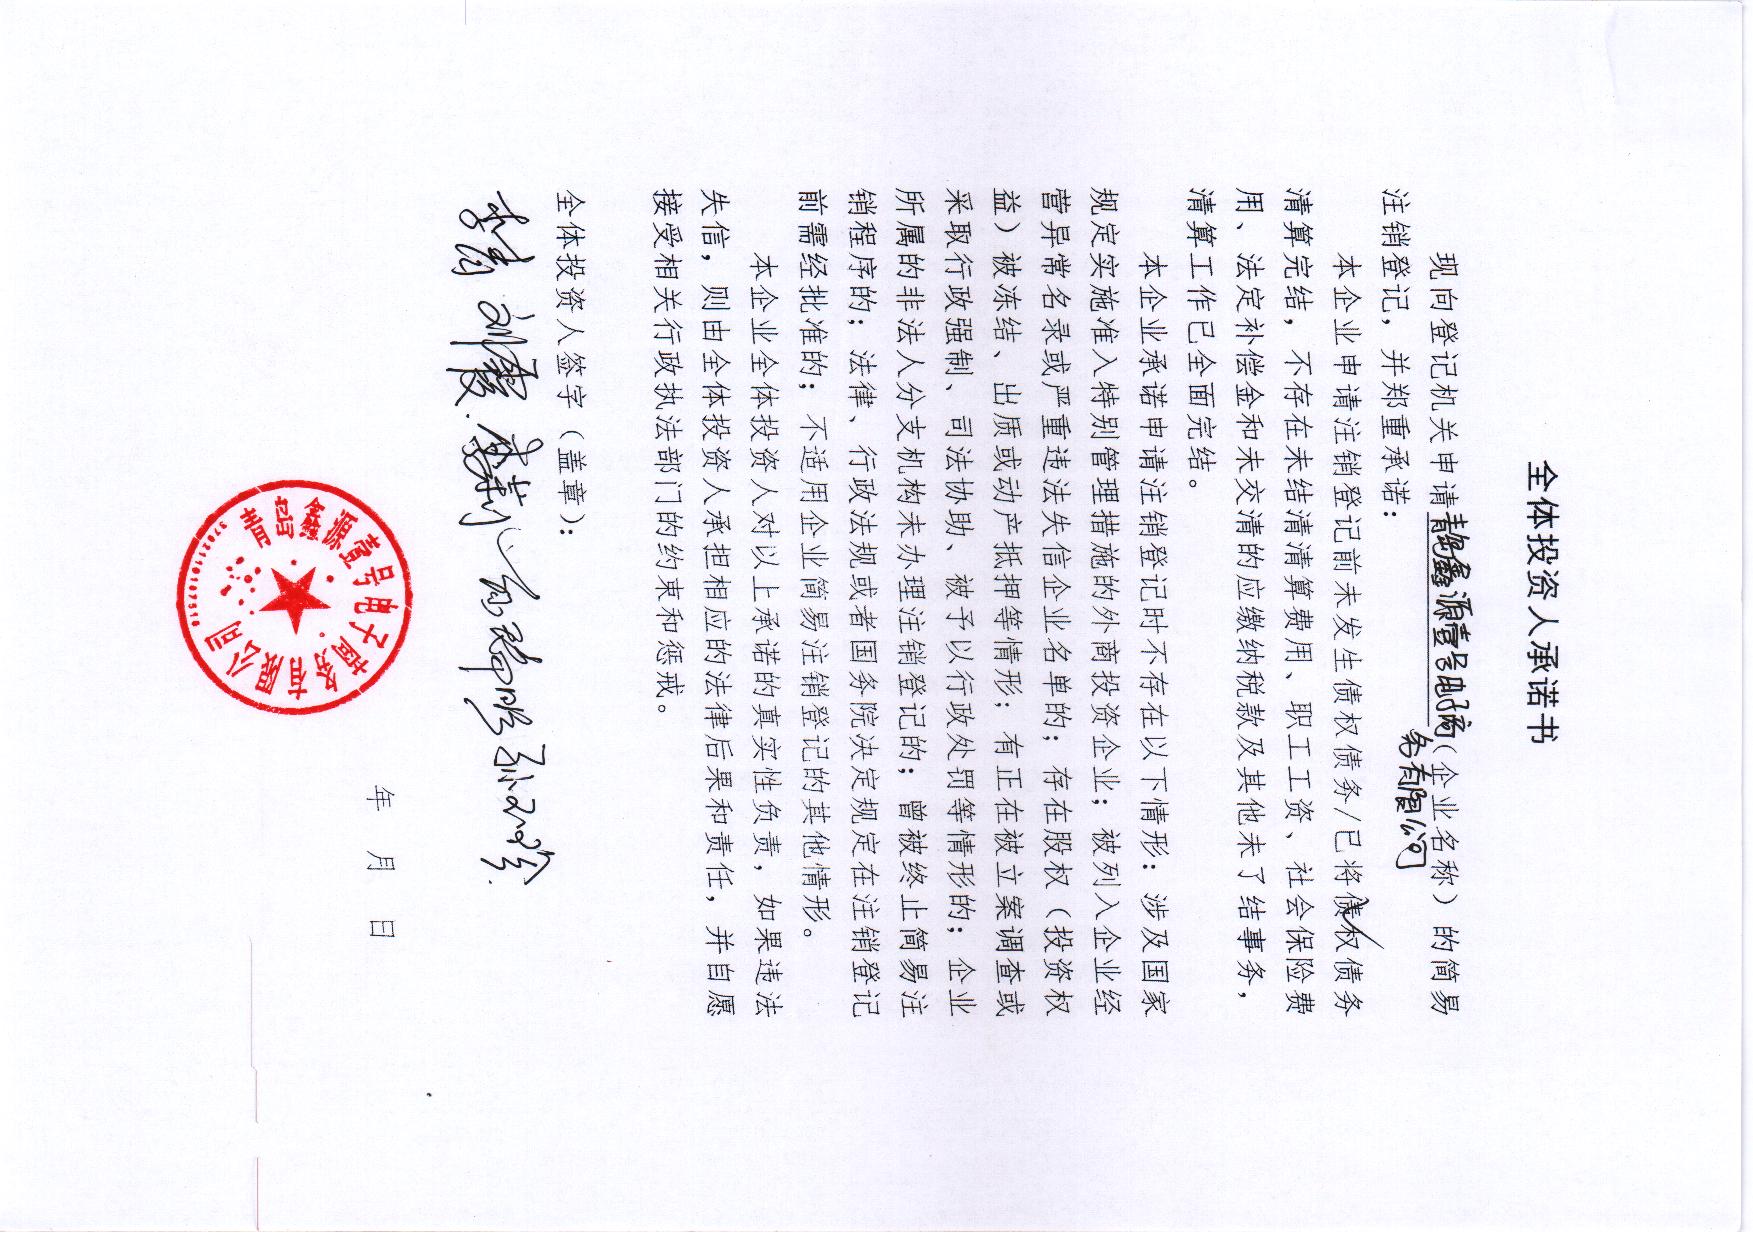 全体投资人承诺书
现向登记机关申请青岛鑫源壹号电子商(企业名称)的简易
务有限公司
注销登记，并郑重承诺：
本企业申请注销登记前未发生债权债务/已将债权债务
清算完结，不存在未结清清算费用、职工工资、社会保险费
用、法定补偿金和未交清的应缴纳税款及其他未了结事务，
清算工作已全面完结。
本企业承诺申请注销登记时不存在以下情形：涉及国家
规定实施准入特别管理措施的外商投资企业；被列入企业经
营异常名录或严重违法失信企业名单的；存在股权（投资权
益）被冻结、出质或动产抵押等情形；有正在被立案调查或
采取行政强制、司法协助、被予以行政处罚等情形的；企业
所属的非法人分支机构未办理注销登记的；曾被终止简易注
销程序的；法律、行政法规或者国务院决定规定在注销登记
前需经批准的；不适用企业简易注销登记的其他情形。
本企业全体投资人对以上承诺的真实性负责，如果违法
失信，则由全体投资人承担相应的法律后果和责任，并自愿
接受相关行政执法部门的约束和惩戒。
全体投资人签字（盖章）：
刘霞
年 月 日
青岛鑫源壹号电子商务有限公司